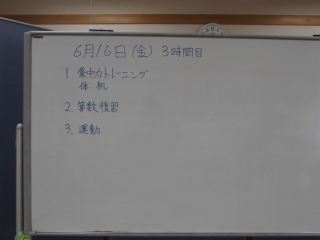 6月16日(金) 3時間目
1. 集中力トレーニング
体 机
2. 算数復習
3. 運動